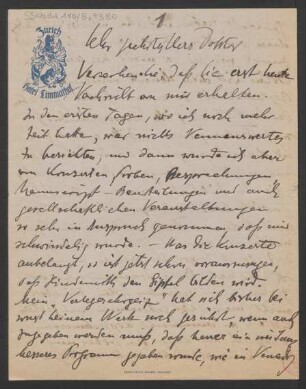 1
Zürich
Hotel Limmathof
Sehr geehrter Herr Doktor
Verzeihen Sie, daß Sie erst heute
Nachricht von mir erhalten.
In den ersten Tagen, wo ich noch mehr
Zeit hatte, war nichts Nennenswertes
zu berichten, und dann wurde ich aber
von Konzerten, Proben, Besprechungen
Manuscript-Bearbeitungen und auch
gesellschaftlichen Veranstaltungen
so sehr in Anspruch genommen, daß mir
schwindelig wurde. – Was die Konzerte
anbelangt, so ist jetzt schon vorauszusagen,
daß Hindemith den Gipfel bilden wird.
Mein "Vorgeschrei" hat sich bisher bei
noch keinem Werk gerührt, wenn auch
zugegeben werden muß, daß heuer ein
besseres Programm gegeben wurde, wie in Venedig